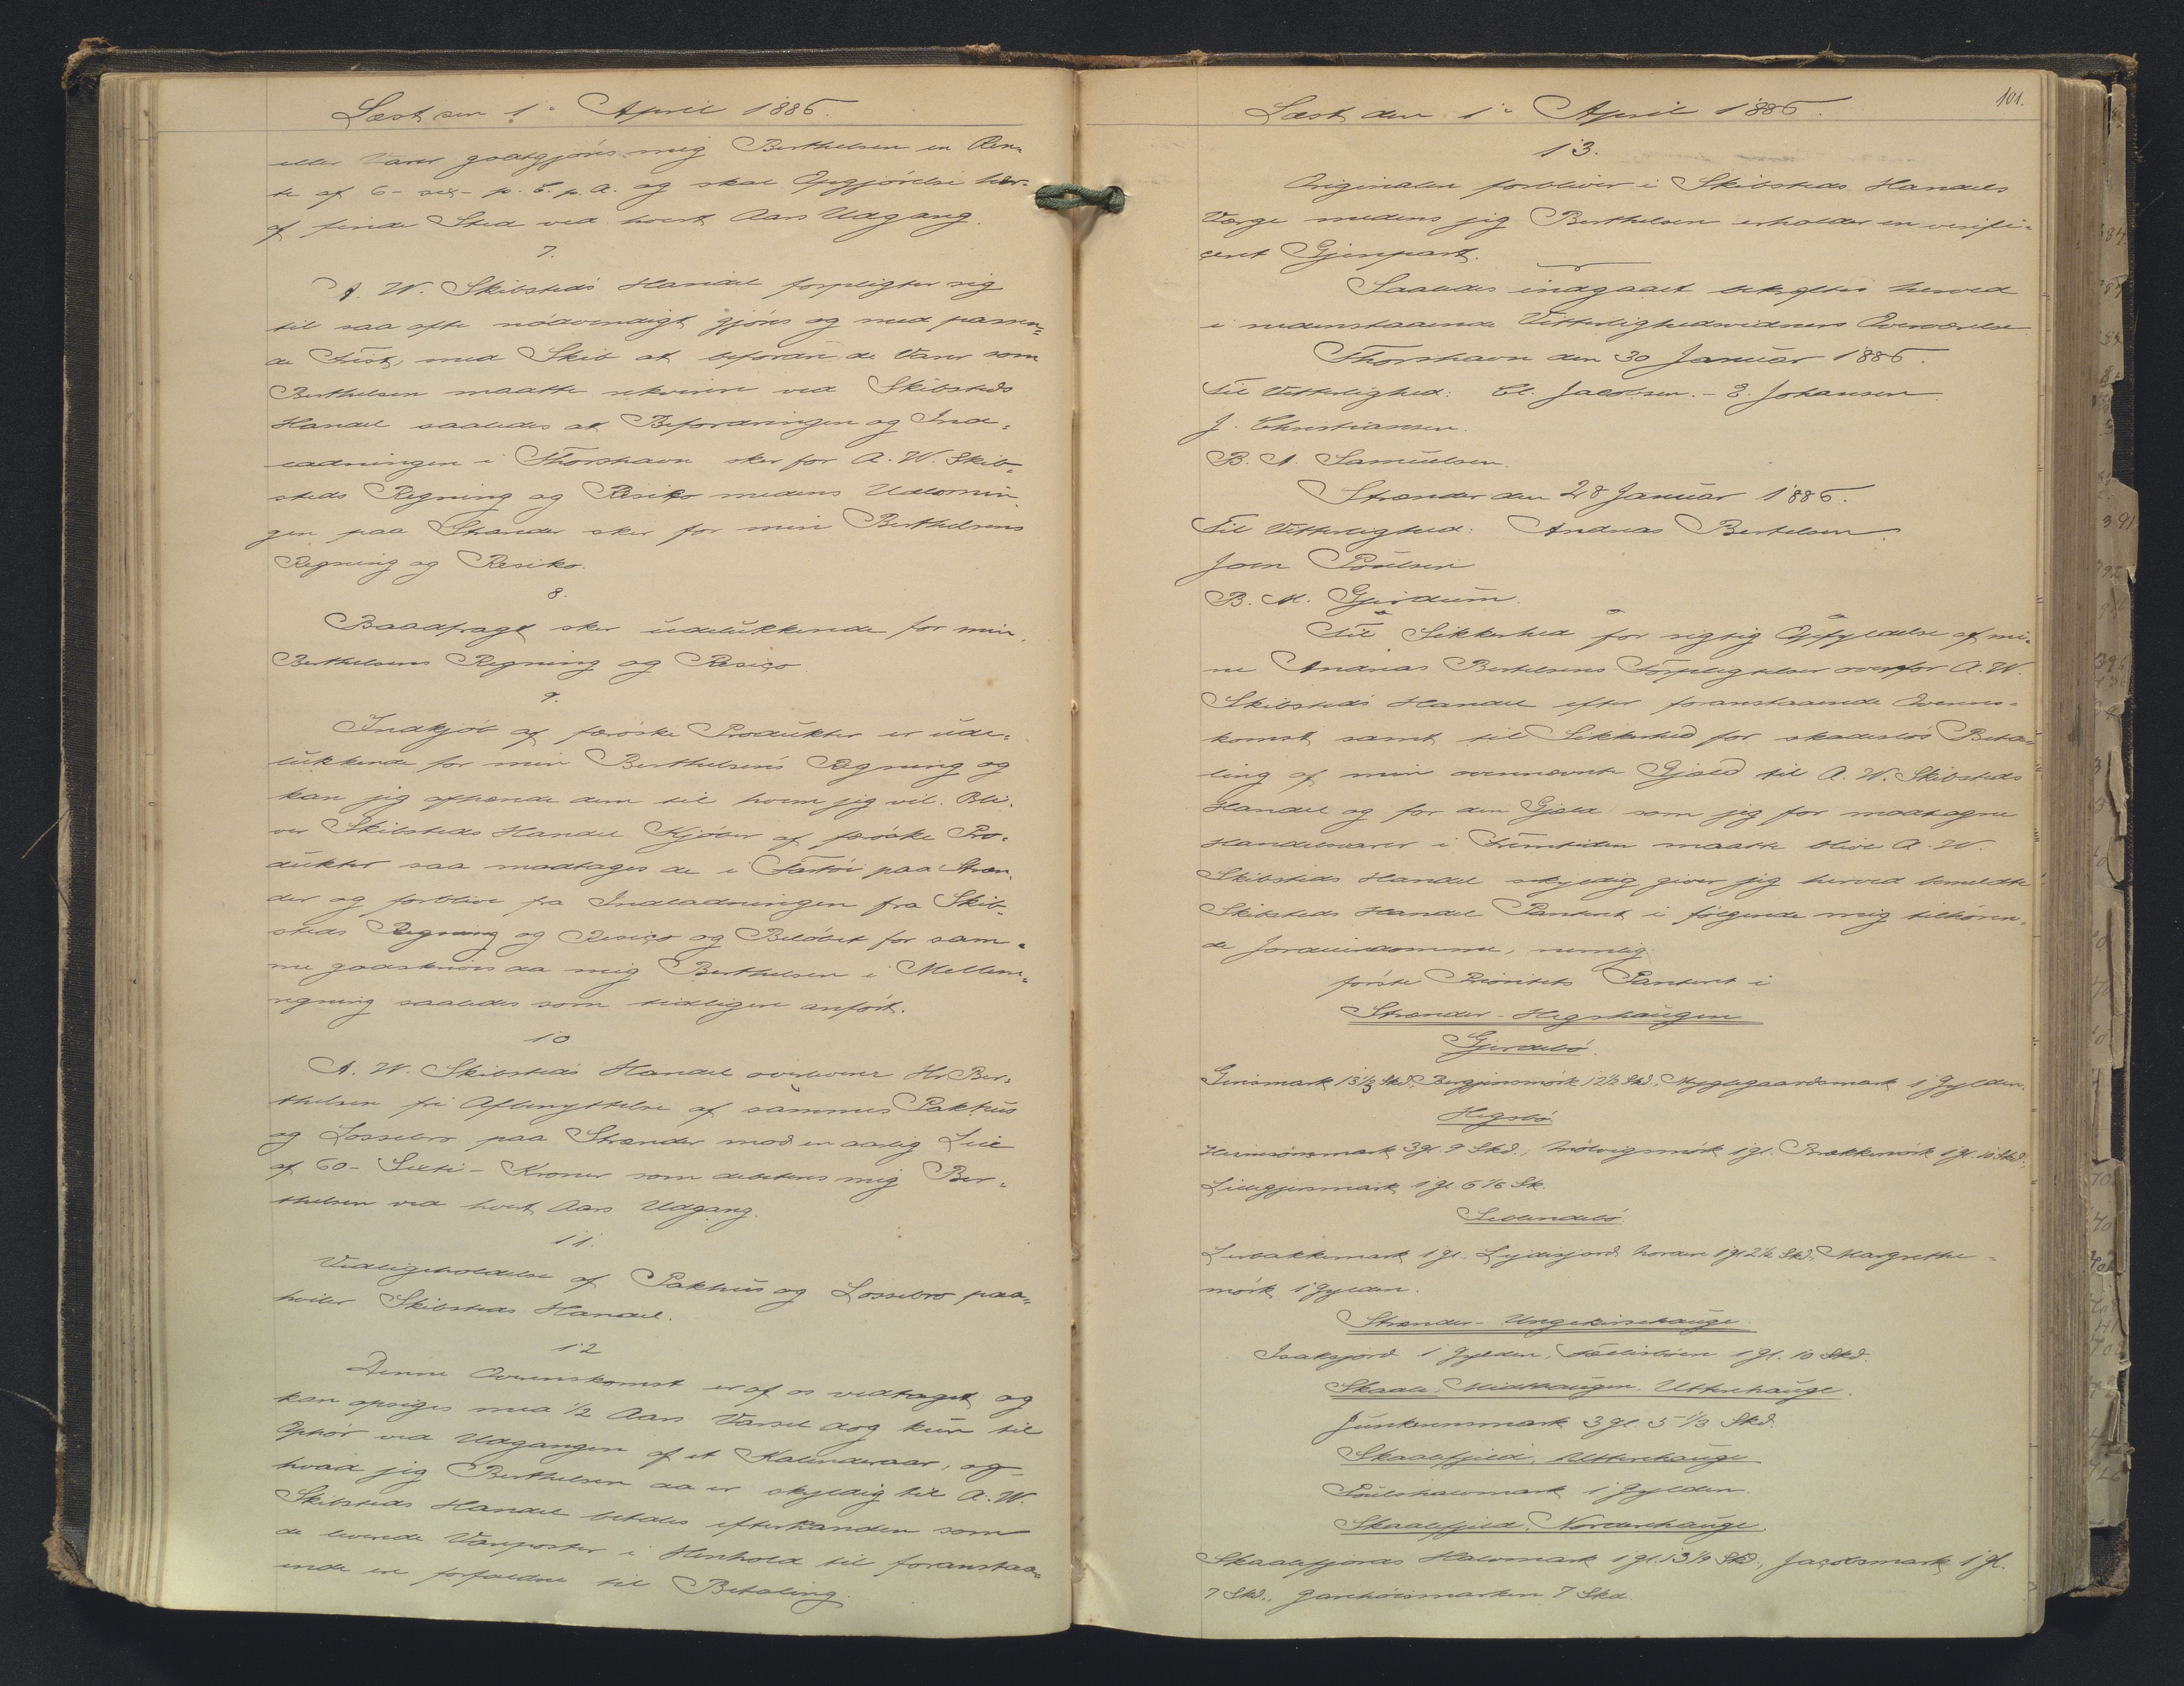 Læst den 1ᵉ April 1886.
eller Varer godtgjøres mig Berthelsen en Ren=
te af 6 - sex - p. C. p. A. og skal Opgjørelse her=
af finde Sted ved hvert Aars Udgang.
7.
A. W. Skibsteds Handel forpligter sig
til saa ofte nødvendigt gjøres og med passen=
de Frist, med Skib at befordre de Varer som
Berthelsen maatte rekvirere ved Skibsteds
Handel saaledes at Befordringen og Ind=
ladningen i Thorshavn sker for A. W. Skib=
steds Regning og Resiko medens Udlosnin
gen paa Strænder sker for min Berthelsens
Regning og Resiko.
8.
Baadfragt sker udelukkende for min,
Berthelsens Regning og Resico.
9.
Indkjøb af færøske Produkter er ude=
lukkende for min Berthelsens Regning og
kan jeg afhænde dem til hvem jeg vil. Bli=
ver Skibsteds Handel Kjøber af færøske Pro=
dukter saa modtages de i Fartøi paa Stræn=
der og forblive fra Indladningen fra Skib=
steds Regning og Resico og Beløbet for sam=
me godskrives da mig Berthelsen i Mellem=
regning saaledes som tidligere anført.
10
A. W. Skibsteds Handel overlever Hr Ber=
thelsen fri Afbenyttelse af sammes Pakhus
og Lossebro paa Strænder mod en aarlig Leie
af 60 - Sexti - Kroner som debiteres mig Ber=
thelsen ved hvert Aars Udgang.
11.
Vedligeholdelse af Pakhus og Lossebro paa=
hviler Skibsteds Handel.
12
Denne Overenskomst er af os vedtaget og
kan opsiges med 1/2 Aars Varsel dog kun til
Ophør ved Udgangen af et Kalenderaar, og
hvad jeg Berthelsen da er skyldig til A. W.
Skibsteds Handel betales efterhaanden som
de leverede Vareposter i Henhold til foranstaa=
ende ere forfaldne til Betaling.
101.
Læst den 1ᵉ April 1886.
13.
Originalen forbliver i Skibsteds Handels
Værge medens jeg Berthelsen erholder en verifi=
ceret Gjenpart.
Saaledes indgaaet bekræftes herved
i nedenstaaende Vitterlighedsvidners Overværelse
Thorshavn den 30 Januar 1886.
Til Vitterlighed: Cl. Jacobsen. - E. Johansen
J. Christiansen.
B. A. Samuelsen.
Strænder den 28 Januar 1886.
Til Vitterlighed: Andreas Bertelsen.
Joen Poulsen
B. M. Gjerdum.
Til Sikkerhed for rigtig Opfyldelse af mi=
ne Andreas Bertelsens Forpligtelser overfor A. W.
Skibsteds Handel efter foranstaaende Overens=
komst samt til Sikkerhed for skadesløs Beta=
ling af min ovennævnte Gjæld til A. W. Skibsteds
Handel og for den Gjæld som jeg for modtagne
Handelsvarer i Fremtiden maatte blive A. W.
Skibsteds Handel skyldig giver jeg herved bemeldte
Skibsteds Handel Panteret i følgende mig tilhøren=
de Jordeiendomme, nemlig
første Prioritets Panteret i
Strænder - Hegshaugen
Gjerdebø.
Genismark 13 1/3 Skd, Bergjinsmørk 12 1/2 Skd, Myglegaardsmark 1 Gylden.
Hegsbø
3 gl. 9 Skd., 1 gl. Brækkemørk 1 gl. 10 Skd,
Lillegjersmark 1 gl 6 1/6 Sk.
Lerbakkemark 1 gl. Lydersjord 1 gl 2 1/2 Skd, Margrethe=
mørk 1 Gylden.
Strænder - Ungekirsehauge.
Isaksjord 1 Gylden, 1 gl. 10 Skd.
Skaale, Midthaugen. Uttrehauge.
Junkerensmark 3 gl 5 1/3 Skd.
Skaalefjeld, Uttrehauge
Poulshalvmark 1 Gylden.
Skaalefjeld, Nordrehauge.
Skaalefjords Halvmark 1 gl. 13 1/9 Skd., Jacobsmark 1 gl.
7 Skd., 7 Skd.